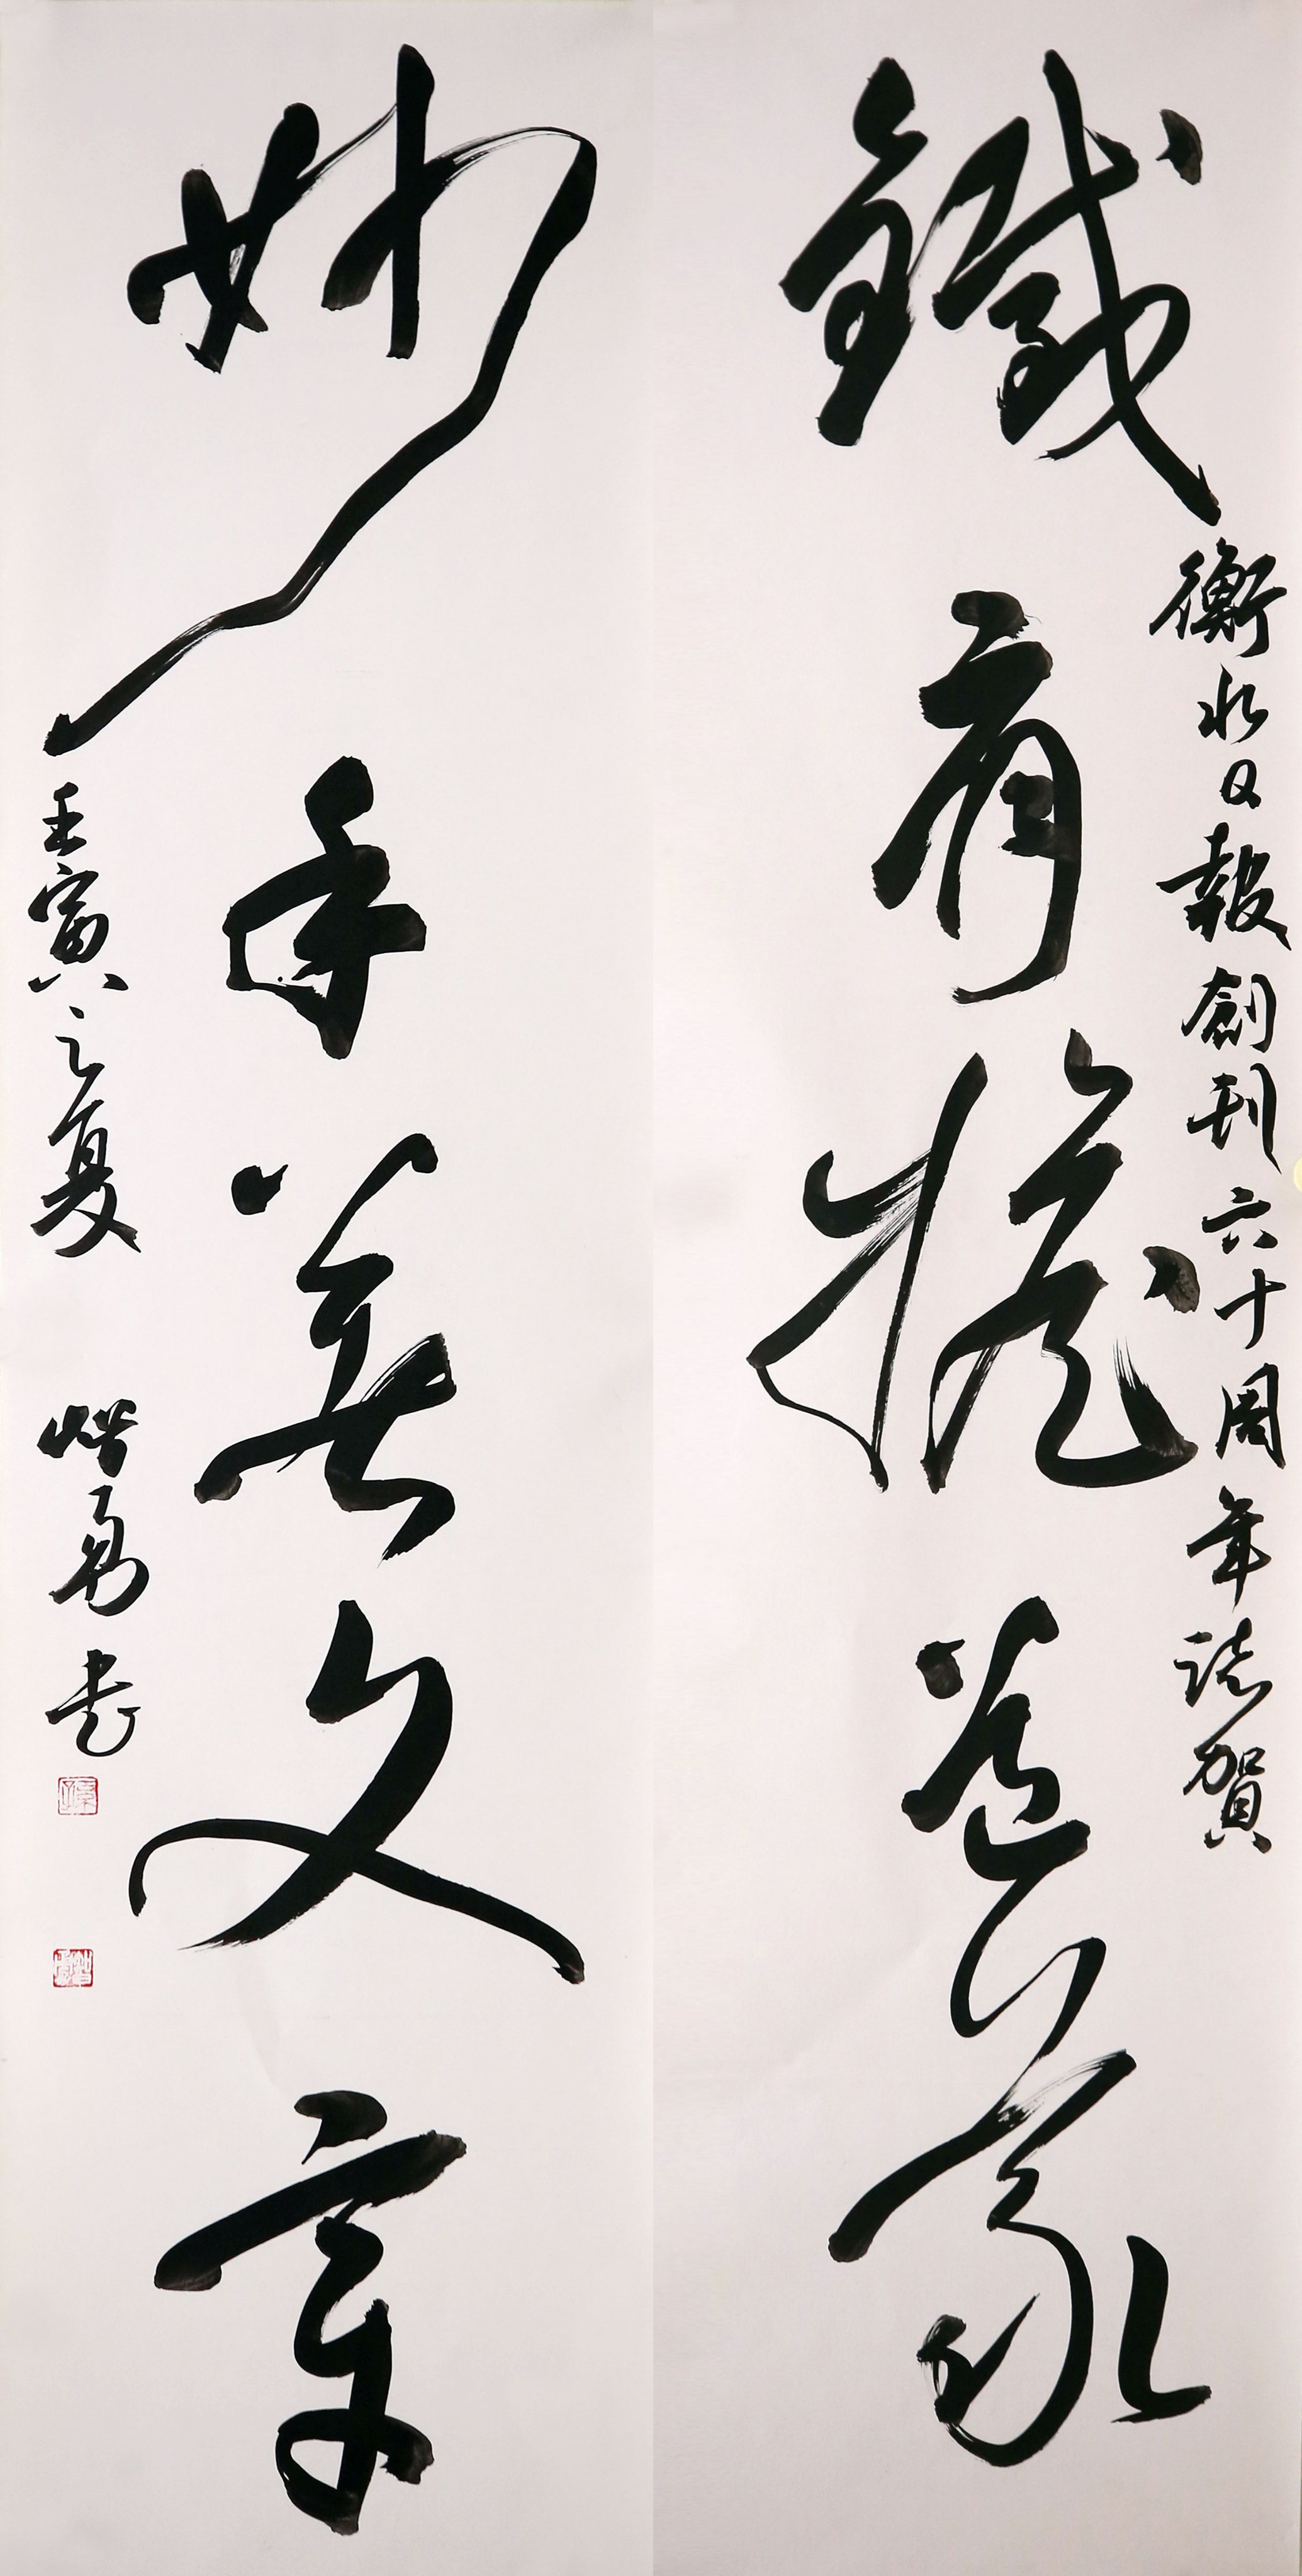 鐵肩擔道義
衡水日報創刊六十周年誌賀
妙手著文章
壬寅之夏 勇书